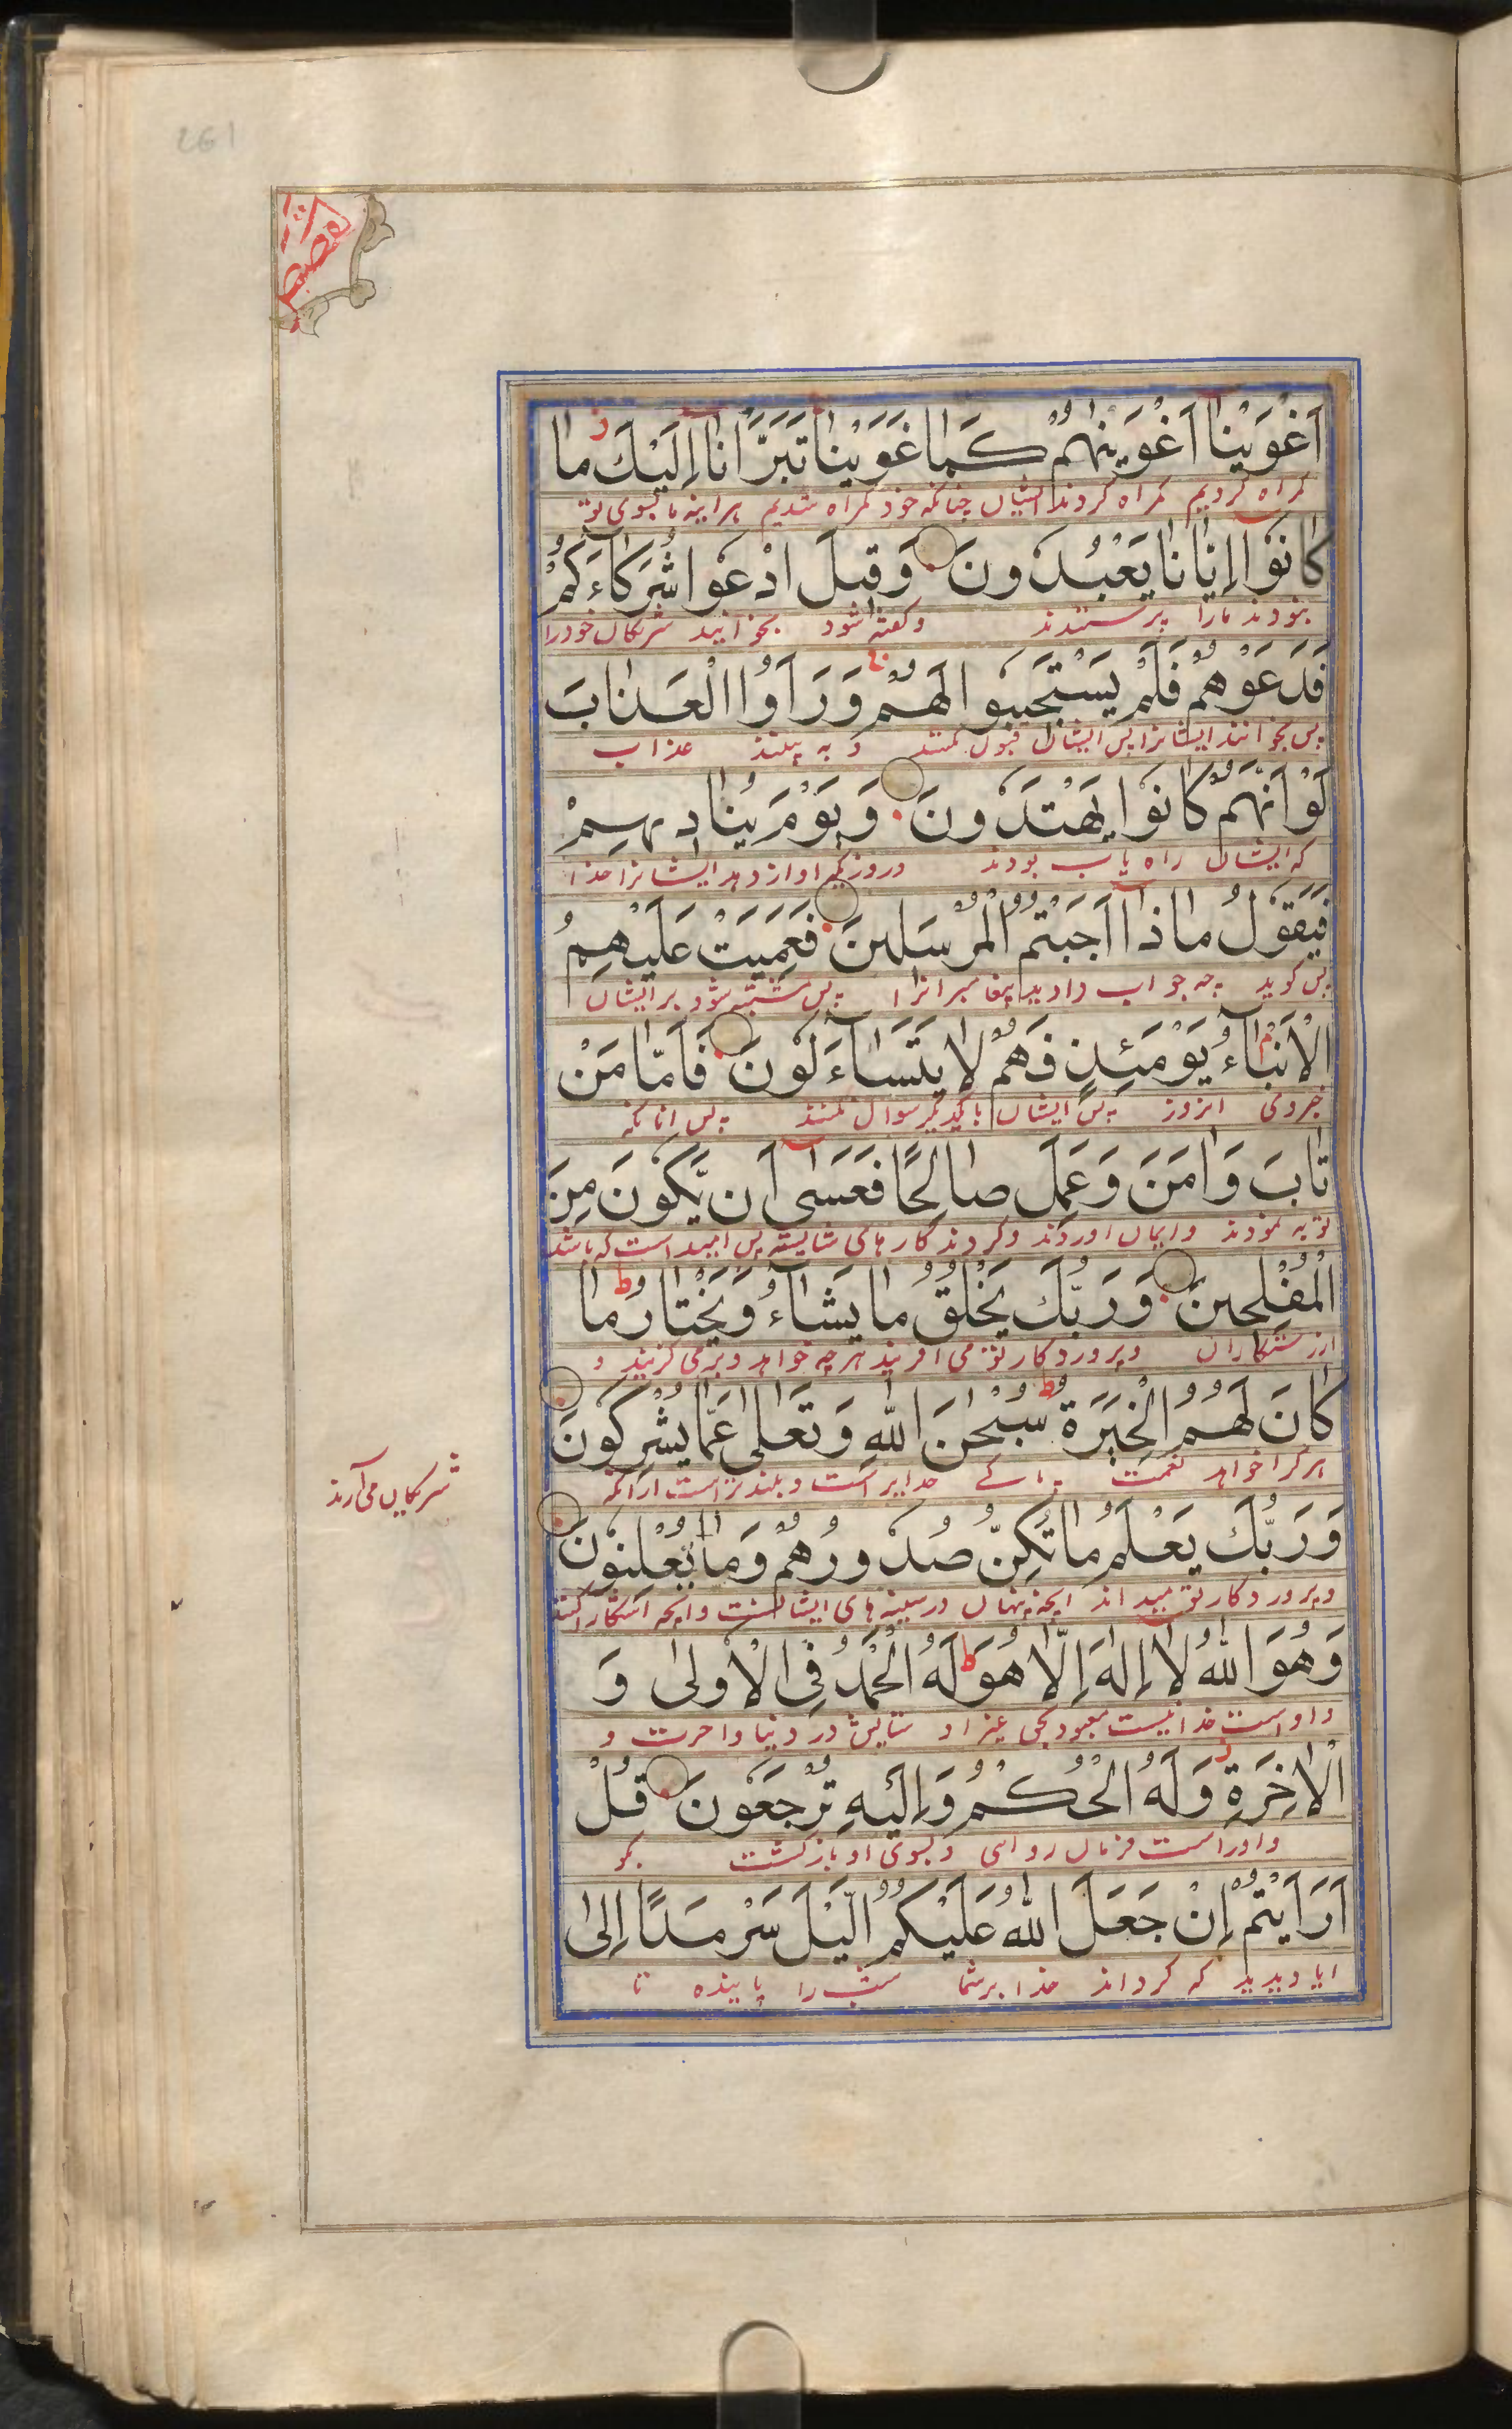 261
القصص
اَغْوَيْنَا اَغْوَيْنٰهُمْ كَمَا غَوَيْنَا تَبَرَّاْنَا اِلَيْكَ مَا
گمراه کردیم گمراه کردند ایشان چنانکه خود گمراه شدیم هراینه ما بسوی تو
كَانُوْا اِيَّانَا يَعْبُدُوْنَ وَقِيْلَ ادْعُوْا شُرَكَاءَكُمْ
بنودند مارا پرستندند وکفته شود بخوانید شریکان خودرا
فَدَعَوْهُمْ فَلَمْ يَسْتَجِيْبُوا لَهُمْ وَرَاَوُا الْعَذَابَ
پس بخوانند ایشانرا پس ایشان قبول نکنند و به بینند عذاب
لَوْ اَنَّهُمْ كَانُوْا يَهْتَدُوْنَ وَيَوْمَ يُنَادِيهِمْ
که ایشان راه یاب بودند وروزیکه اواز دهد ایشانرا خدا
فَيَقُوْلُ مَاذَا اَجَبْتُمُ الْمُرْسَلِيْنَ فَعَمِيَتْ عَلَيْهِمُ
پس کوید چه جواب دادید پیغامبرانرا پس مشتبه شود برایشان
الْاَنْبَاءُ يَوْمَئِذٍ فَهُمْ لَا يَتَسَاءَلُوْنَ فَاَمَّا مَنْ
انروز پس ایشان بایکدیگر سوال نکنند پس انانکه
تَابَ وَاٰمَنَ وَعَمِلَ صَالِحًا فَعَسٰى اَنْ يَّكُوْنَ مِنَ
توبه نمودند وایمان اوردند وکردند کارهای شایسته پس امید است که باشد
الْمُفْلِحِيْنَ وَرَبُّكَ يَخْلُقُ مَا يَشَاءُ وَيَخْتَارُ مَا
ازرستکاران وپروردکار تو می افریند هرچه خواهد وبرمی کزیند و
كَانَ لَهُمُ الْخِيَرَةُ سُبْحٰنَ اللّٰهِ وَتَعَالٰى عَمَّا يُشْرِكُوْنَ
هرکرا خواهد نعمت پاکے خدایراست وبلندتراست ازانکه
شریکان می آرند
وَرَبُّكَ يَعْلَمُ مَا تُكِنُّ صُدُوْرُهُمْ وَمَا يُعْلِنُوْنَ
وپروردکار تو میداند انچه پنهان درسینه های ایشانست وانچه اشکارا کنند
وَهُوَ اللّٰهُ لَا اِلٰهَ اِلَّا هُوَ لَهُ الْحَمْدُ فِى الْاُوْلٰى وَ
واوست خدا نیست معبود بحق غیر او ستایش در دنیا واخرت و
الْاٰخِرَةِ وَلَهُ الْحُكْمُ وَاِلَيْهِ تُرْجَعُوْنَ قُلْ
واوراست فرمان روائی وبسوی او بازکشت بکو
اَرَاَيْتُمْ اِنْ جَعَلَ اللّٰهُ عَلَيْكُمُ الَّيْلَ سَرْمَدًا اِلٰى
ایا دیدید که کرداند خدا برشما شب را پاینده تا